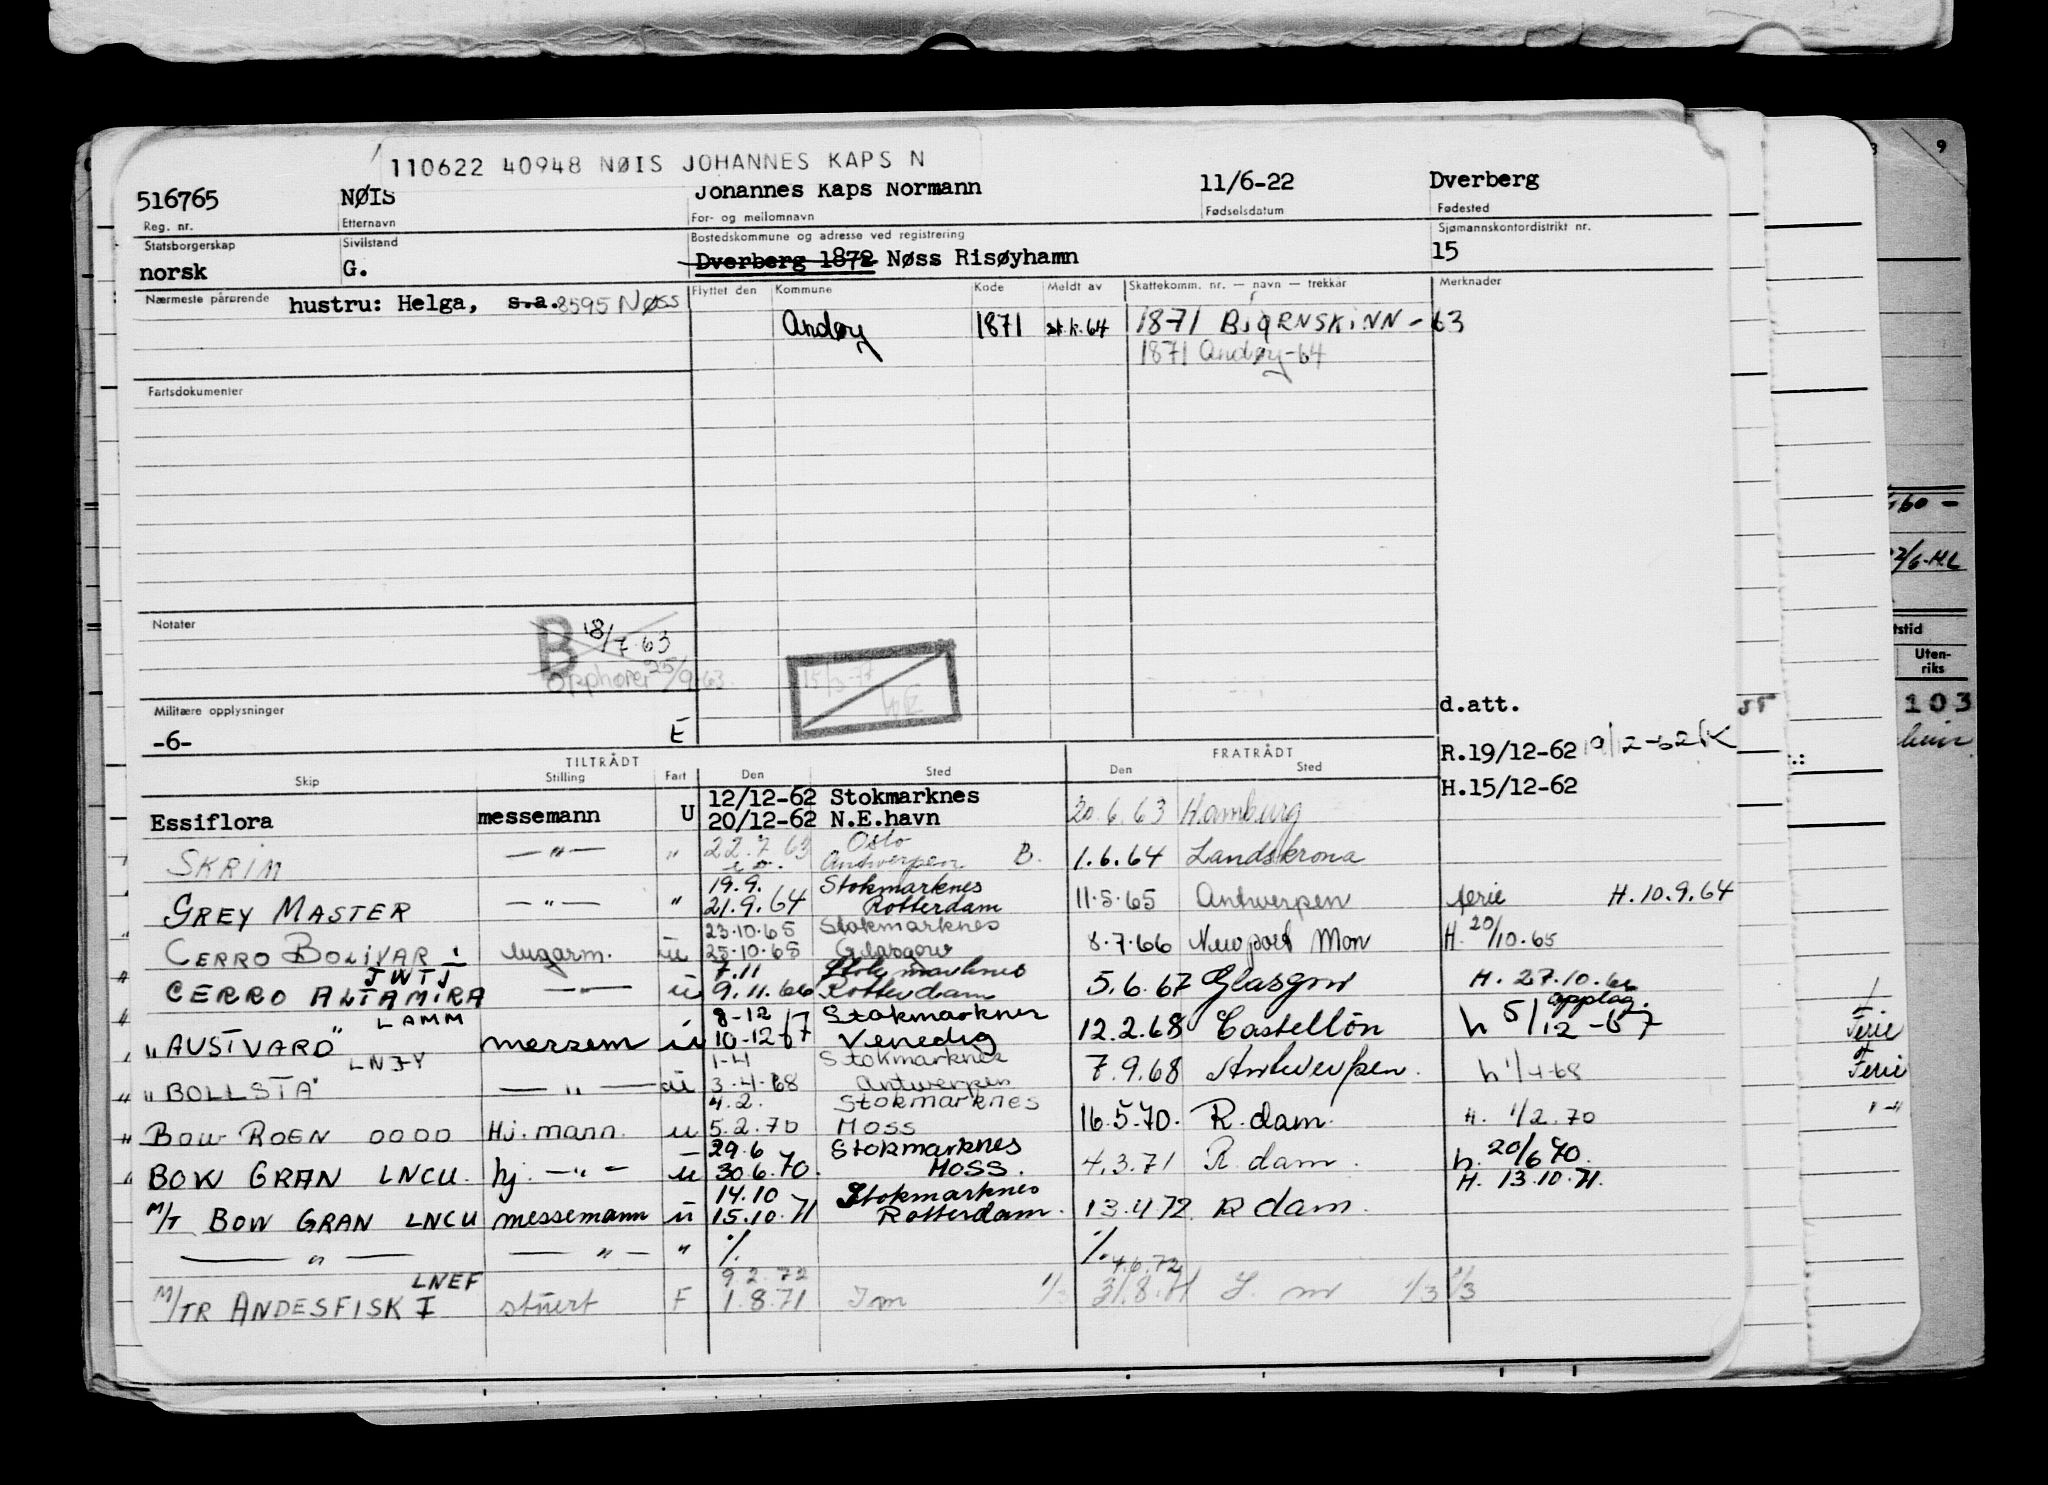 110622 40948 NØIS JOHANNES KAPS N
516765 NØIS Johannes Kaps Normann 11/6-22 Dverberg
Reg. nr. Etternavn For- og mellomnavn Fødselsdatum Fødested
Statsborgerskap Sivilstand Bostedskommune og adresse ved registrering Sjømannskontordistrikt nr.
norsk G. Dverberg 1872 Nøss Risøyhamn 15
Nærmeste pårørende hustru: Helga, s.a. 8595 Nøss Flyttet den Kommune Kode Meldt av Skattekomm. nr. — navn — trekkår Merknader
Andøy 1871 64 1871 BJØRNSKINN - 63
1871 Andøy-64
Fartsdokumenter
Notater B 18/7.63
Opphører 25/9-63
Militære opplysninger d.att.
-6- E
TILTRÅDT FRATRÅDT R.19/12-62 19/12-62 K
Skip Stilling Fart Den Sted Den Sted
H.15/12-62
12/12-62 Stokmarknes
Essiflora messemann U 20/12-62 N.E.havn 20.6.63 Hamburg
22.7.63 Oslo
SKRIM — " — " Antwerpen B. 1.6.64 Landskrona
19.9. Stokmarknes
GREY MASTER — " — " 21.9.64 Rotterdam 11.5.65 Antwerpen ferie H.10.9.64
23.10.65 Stokmarknes
CERRO BOLIVAR lugarm. u 25.10.65 Glasgow 8.7.66 Newport Mon H. 20/10.65
JWTJ 7.11 Stokmarknes
CERRO ALTAMIRA — " — u 9.11.66 Rotterdam 5.6.67 Glasgow H. 27.10.66
LAMM 8-12 Stokmarknes opplag.
"AUSTVARD" messem u 10-12-67 Venedig 12.2.68 Castellon h 5/12-67
LNJY 1-4 Stokmarknes
"BOLLSTA" — " — u 3.4.68 Antwerpen 7.9.68 Antwerpen. h 1/4-68
4.2. Stokmarknes
BOW ROEN OOOO Hj. mann. u 5.2.70 Moss 16.5.70. R.dam. H. 1/2.70
29.6 Stokmarknes
BOW GRAN LNCU. hj. — " — u 30.6.70. Moss. 4.3.71 R.dam. h. 20/6 70.
14.10 Stokmarknes H. 13.10.71.
M/T BOW GRAN LNCU messemann u 15.10.71 Rotterdam. 13.4.72. R dam.
— " — — " — " %. %.
LNEF 9.2.72 4.6.72
M/TR ANDESFISK I stuert F 1.8.71 31.8.71 1/3 1/3
9
2/6-HL
Uten-
riks
103
Ferie
Ferie